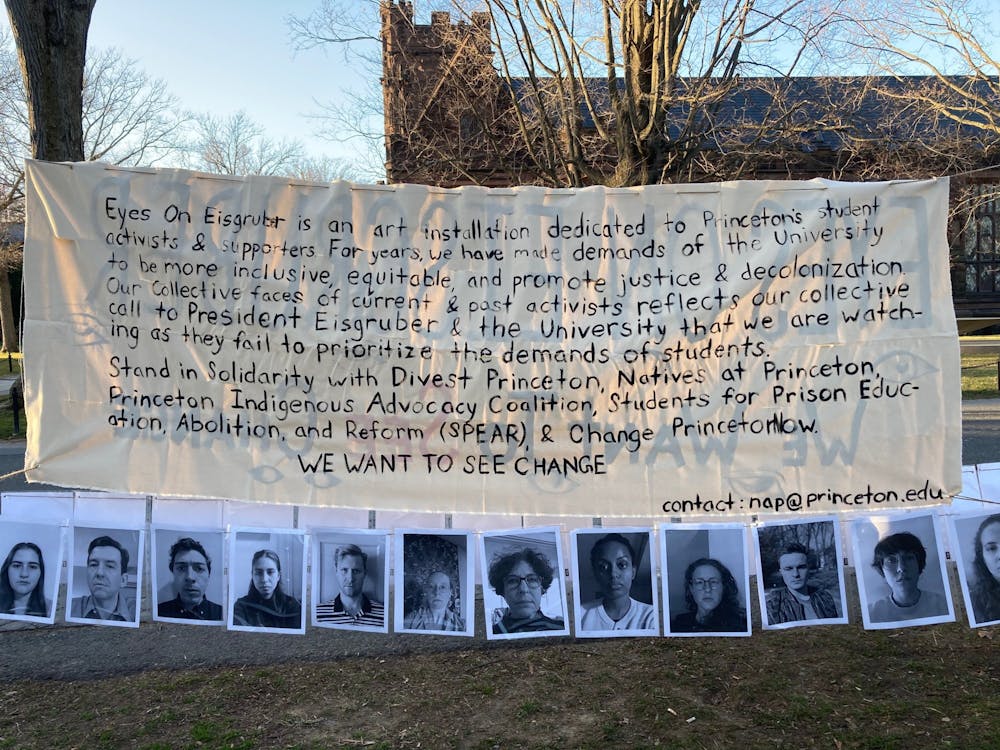 Eyes On Eisgruber is an art installation dedicated to Princeton's student
activists & supporters. For years, we have made demands of the University
to be more inclusive, equitable, and promote justice & decolonization.
Our Collective faces of current & past activists reflects our collective
call to President Eisgruber & the University that we are watch-
ing as they fail to prioritize the demands of students.
Stand in Solidarity with Divest Princeton, Natives at Princeton,
Princeton Indigenous Advocacy Coalition, Students for Prison Educ-
ation, Abolition, and Reform (SPEAR), & Change PrincetonNow.
WE WANT TO SEE CHANGE
contact: nap@princeton.edu